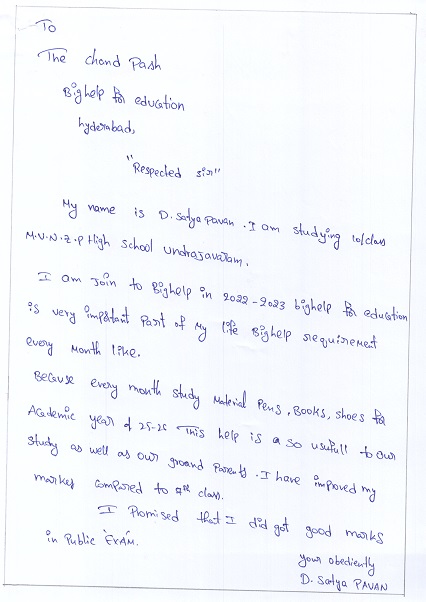 To
The chand Pash
Bighelp for education
hyderabad,
"Respected sir"
My name is D. Satya Pavan . I am studying 10/class
M.V.N.Z.P High School Undrajavaram.
I am Join to Bighelp in 2022-2023 bighelp for education
is very important Part of My life Bighelp requirement
every Month like.
Because every month study Material Pens, Books, shoes for
Academic year of 25-26 This help is a so usufull to our
study as well as our ground Parents . I have improved my
markes compared to 9th class.
I Promised that I did got good marks
in Public EXAM.
your obediently
D. Satya PAVAN